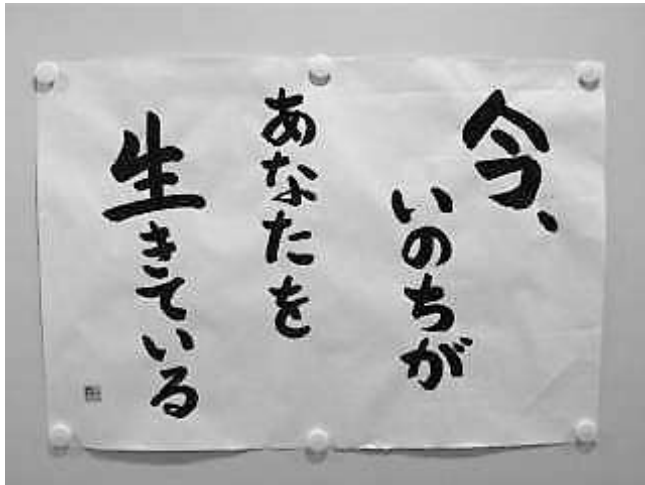 今、
いのちが
あなたを
生きている